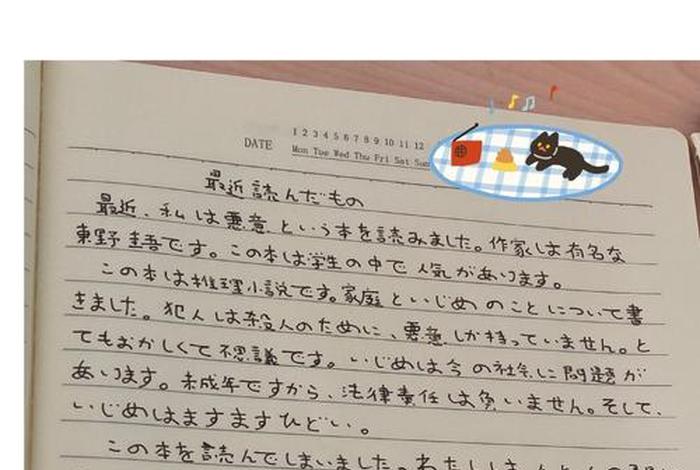 DATE
1 2 3 4 5 6 7 8 9 10 11 12
Mon Tue Wed Thu Fri Sat Sun
最近読んだもの
最近、私は悪意という本を読みました。作家は有名な
東野圭吾です。この本は学生の中で人気があります。
この本は推理小説です。家庭といじめのことについて書
きました。犯人は殺人のために、悪意しか持っていません。と
てもおかしくて不思議です。いじめは今の社会に問題が
あります。未成年ですから、法律責任は負いません。そして、
いじめはますますひどい。
この本を読んでしまいました。